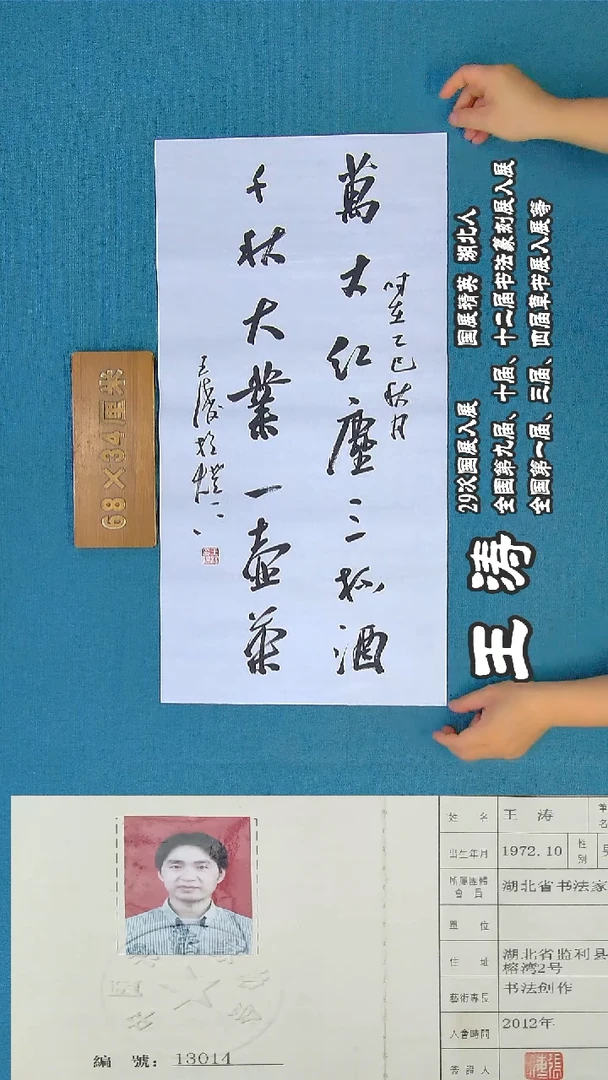 68×34厘米
萬丈红塵三杯酒
千秋大業一壺茶
时在乙巳秋月
王涛
王涛
29次国展入展 国展精英 湖北人
全国第九届、十届、十二届书法篆刻展入展
全国第一届、三届、四届草书展入展等
姓 名 王 涛
出生年月 1972.10 性别
所屬團體會員 湖北省书法家
單 位
住 址 湖北省监利县
榕湾2号
藝術專長 书法创作
入會時間 2012年
簽證人
編 號: 13014